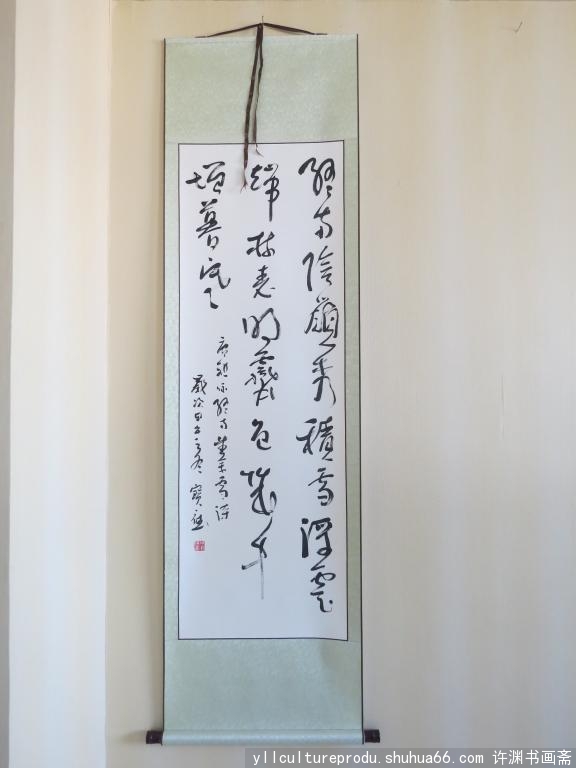 終南陰嶺秀積雪浮雲
端林表明霽色城中
增暮寒
唐祖詠終南望余雪詩
歲次之冬
yllcultureprodu.shuhua66.com @ 许渊书画斋